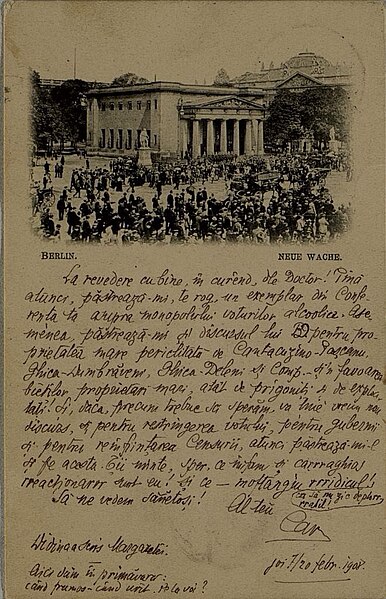 BERLIN.
NEUE WACHE.
La revedere cu bine, în curênd, dle Doctor! Pînă
atunci, păstrează-mi, te rog, un exemplar din Confe-
renta ta asupra monopolului voturilor alcoolice. Ase-
menea, păstrează-mi și discursul lui pentru pro-
prietatea mare periclitată de Cantacuzino-Pașcanu,
Ghica-Dumbrăveni, Ghica-Deleni și Comp. și'n favoarea
bieților proprietari mari, atât de prigoniți și de exploa-
tați! Și, dacă, precum trebue să sperăm, va ține vreun nou
discurs, și pentru restrîngerea votului, pentru gubernii
și pentru reînființarea Censurii, atunci păstrează-mi-l
și pe acesta. Tu minte, sper, ce nifam și carraghios
reacționarrr sunt eu! Și ce – moftangiu rrridicul!
(ca să nu zic deplorr-
rrabil!)
Să ne vedem sănătoși!
Al tău
Car
Didina a scris Margaretei.
Aici dăm în primăvară:
când frumos – când urît.
Joi 7/20 febr. 1908